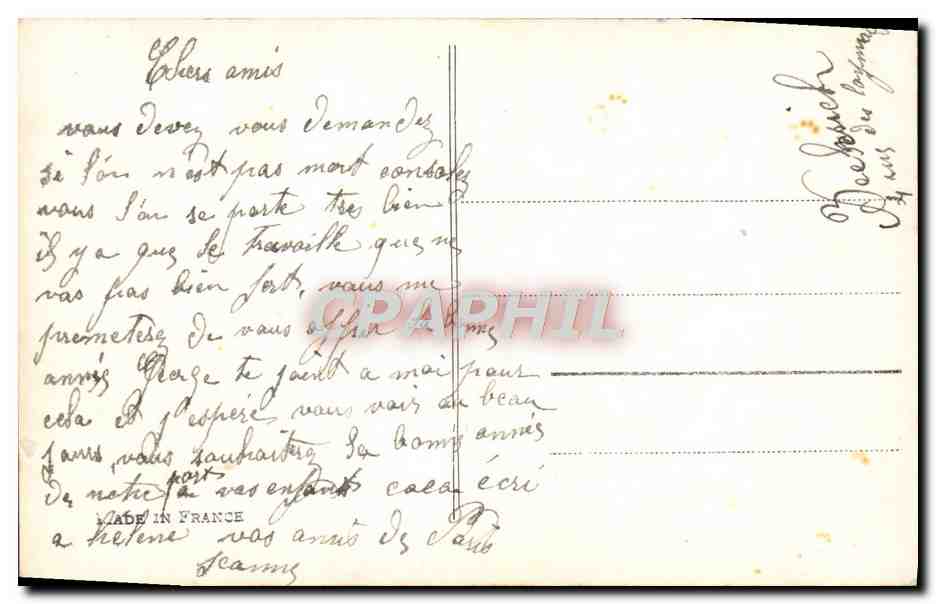 Chers amis
vous devez vous demandez
si l'on n'est pas mort consoles
vous l'on se porte tres bien
il y a que le travaille que ne
vas pas bien fort, vous me
prometerez de vous offrir la bonne
année George te joint a moi pour
cela et j'espere vous voir un beau
jours, vous souhaiterez la bonne année
de notre part a vos enfant coca écri
a helene vos amis de Paris
Jeanne
MADE IN FRANCE
CPAPHIL
des